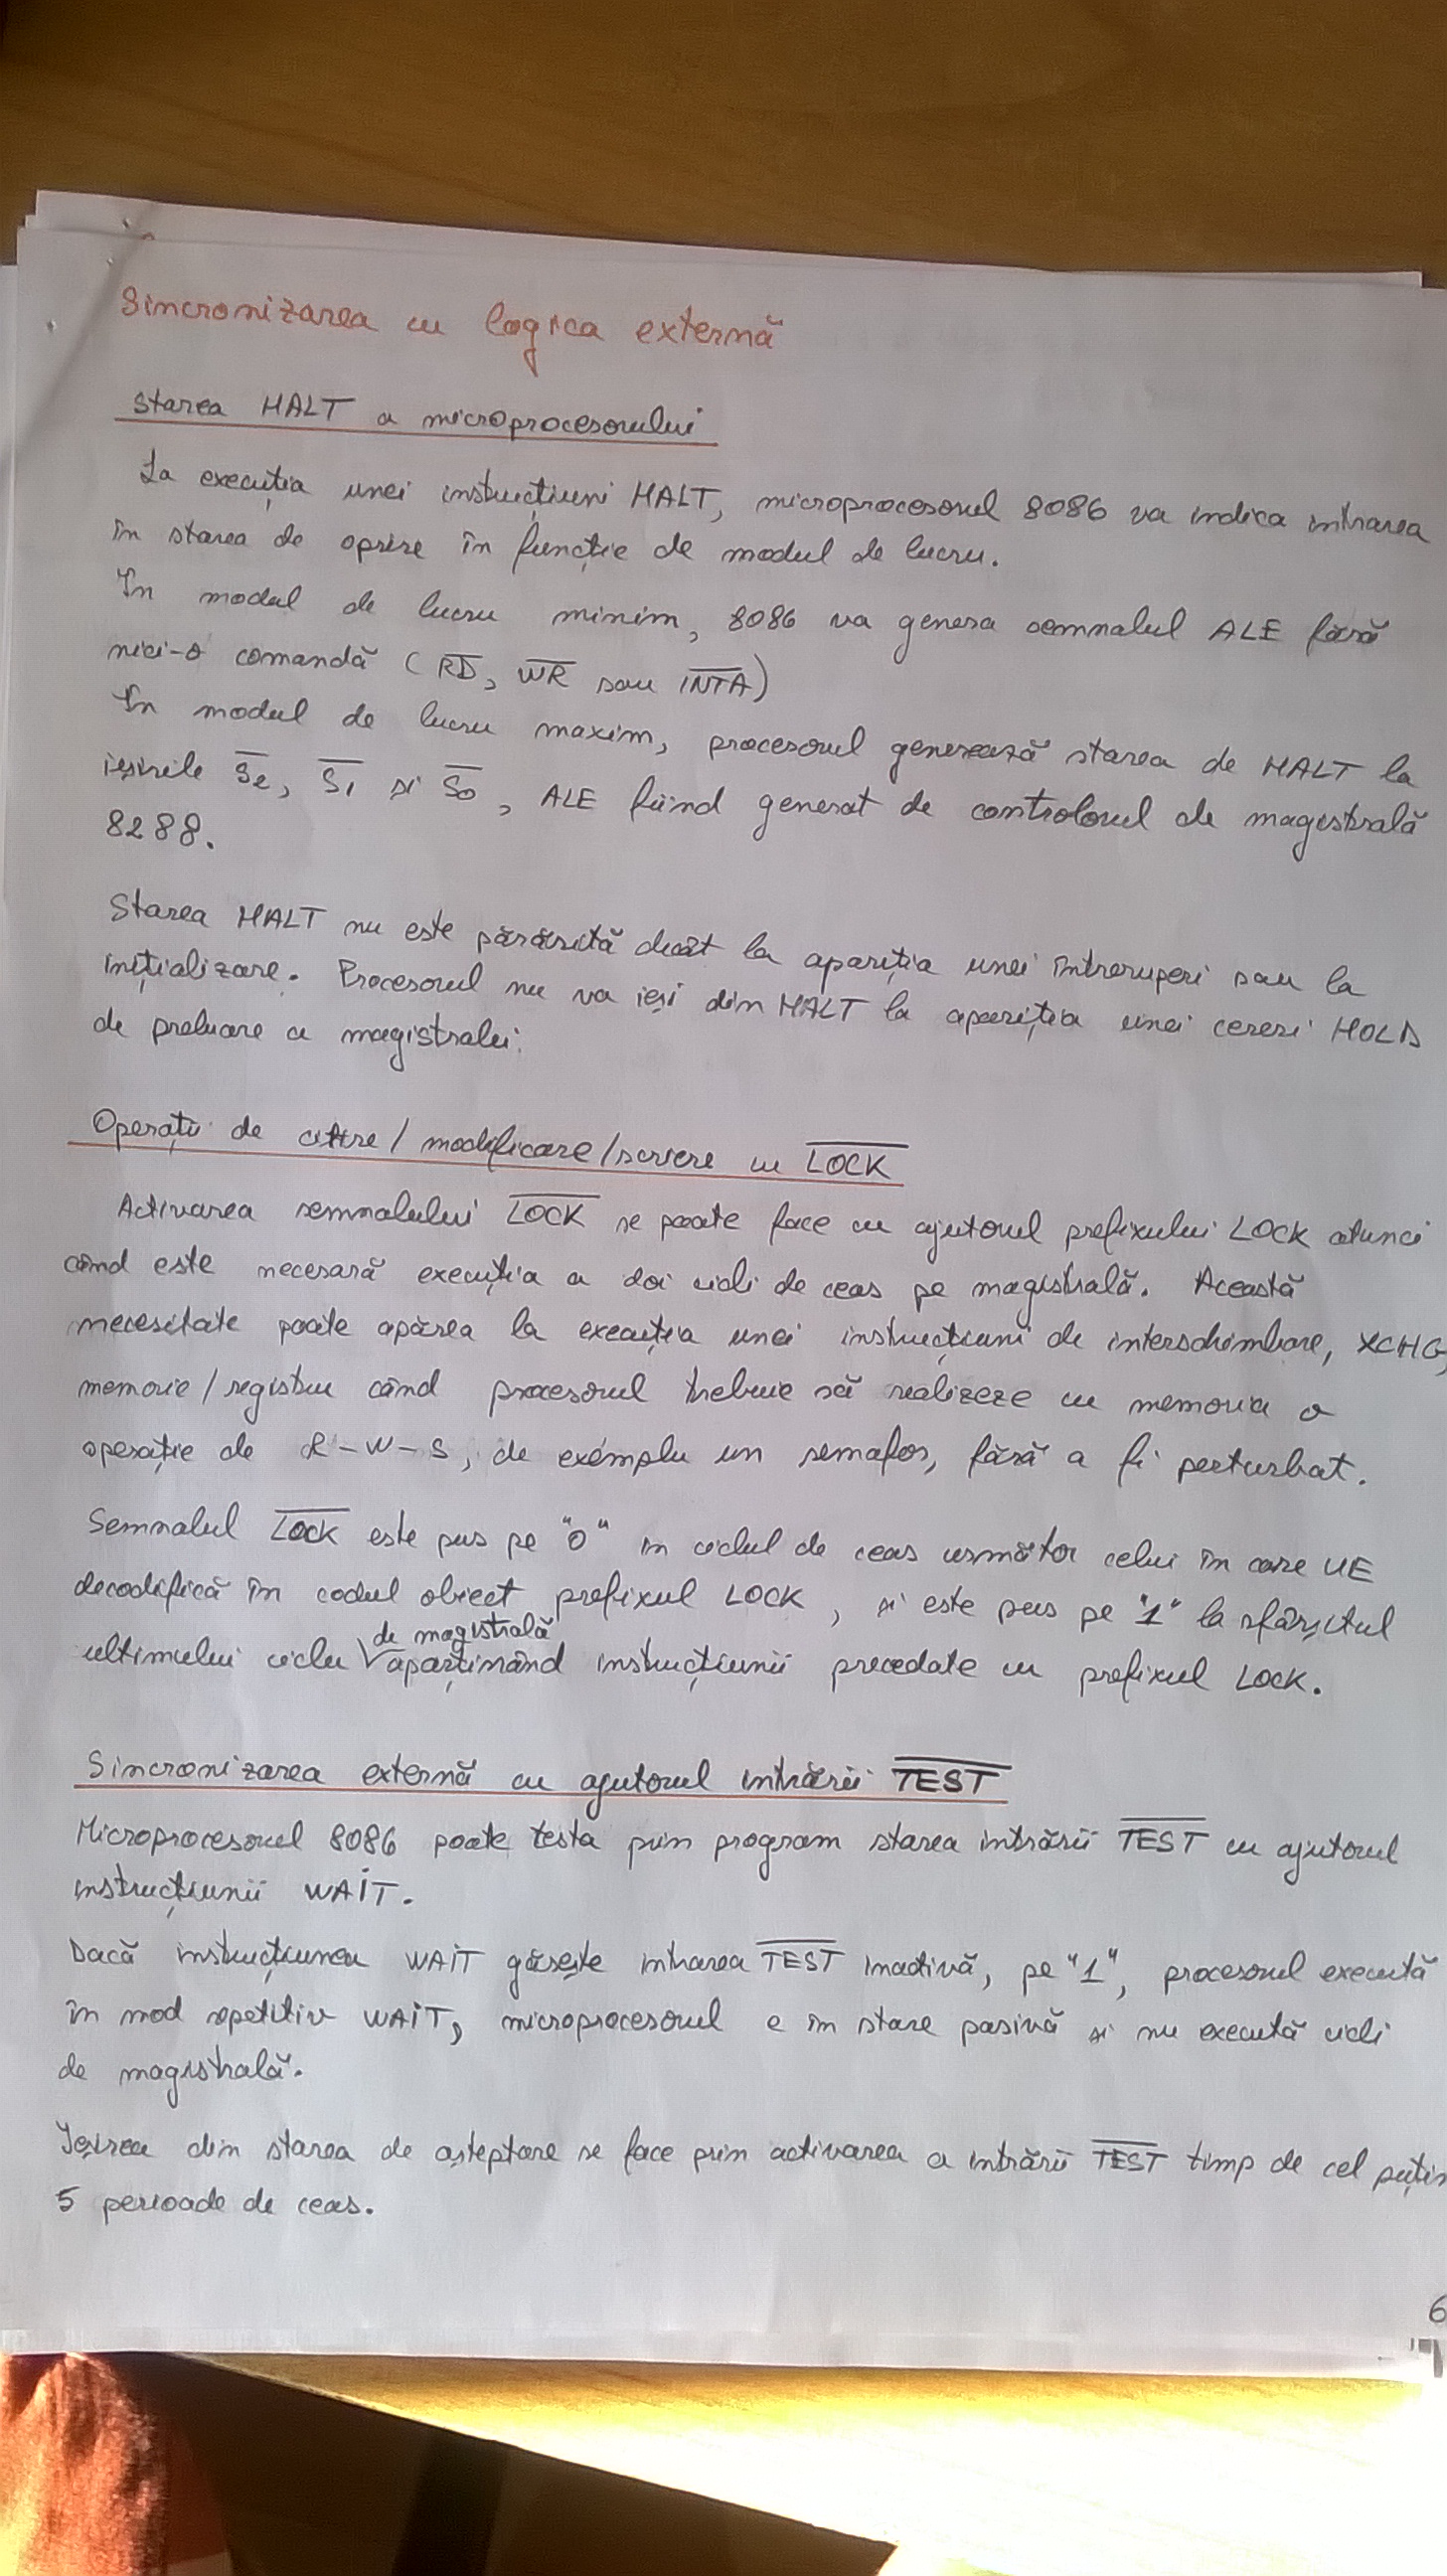 Sincronizarea cu logica externă
Starea HALT a microprocesorului
La execuția unei instrucțiuni HALT, microprocesorul 8086 va indica intrarea
în starea de oprire în funcție de modul de lucru.
În modul de lucru minim, 8086 va genera semnalul ALE fără
nici-o comandă (R̅D̅, W̅R̅ sau I̅N̅T̅A̅)
În modul de lucru maxim, procesorul generează starea de HALT la
ieșirile S̅2̅, S̅1̅ și S̅0̅, ALE fiind generat de controlorul de magistrală
8288.
Starea HALT nu este părăsită decât la apariția unei întreruperi sau la
inițializare. Procesorul nu va ieși din HALT la apariția unei cereri HOLD
de preluare a magistralei.
Operații de citire/modificare/scriere cu L̅O̅C̅K̅
Activarea semnalului L̅O̅C̅K̅ se poate face cu ajutorul prefixului LOCK atunci
când este necesară execuția a doi cicli de ceas pe magistrală. Această
necesitate poate apărea la execuția unei instrucțiuni de interschimbare, XCHG
memorie/registru când procesorul trebuie să realizeze cu memoria o
operație de R-W-S, de exemplu un semafor, fără a fi perturbat.
Semnalul L̅O̅C̅K̅ este pus pe "0" în ciclul de ceas următor celui în care UE
decodifică în codul obiect prefixul LOCK, și este pus pe "1" la sfârșitul
ultimului ciclu de magistrală aparținând instrucțiunii precedate cu prefixul LOCK.
Sincronizarea externă cu ajutorul intrării T̅E̅S̅T̅
Microprocesorul 8086 poate testa prin program starea intrării T̅E̅S̅T̅ cu ajutorul
instrucțiunii WAIT.
Dacă instrucțiunea WAIT găsește intrarea T̅E̅S̅T̅ inactivă, pe "1", procesorul execută
în mod repetitiv WAIT, microprocesorul e în stare pasivă și nu execută cicli
de magistrală.
Ieșirea din starea de așteptare se face prin activarea a intrării T̅E̅S̅T̅ timp de cel puțin
5 perioade de ceas.
6